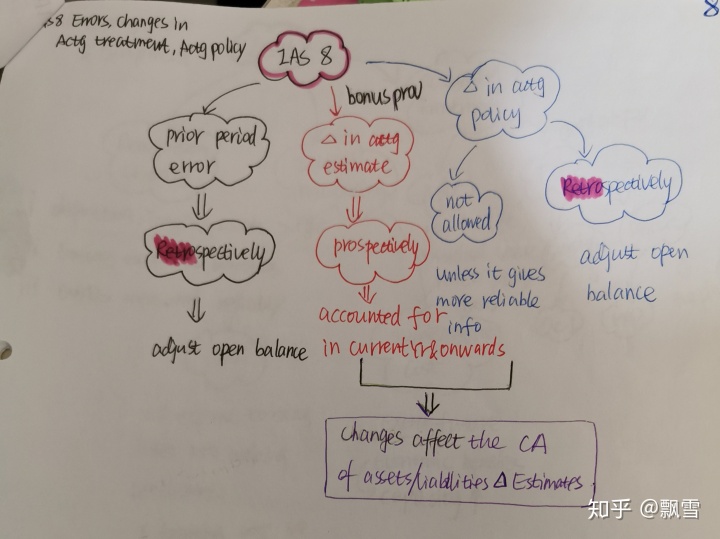 s8 Errors, changes in
Actg treatment, Actg policy
8
IAS 8
bonus prov
prior period
error
Retrospectively
adjust open balance
Δ in actg
estimate
prospectively
accounted for
in current Yr & onwards
Δ in actg
policy
not
allowed
unless it gives
more reliable
info
Retrospectively
adjust open
balance
Changes affect the CA
of assets/liabilities Δ Estimates
知乎 @飘雪